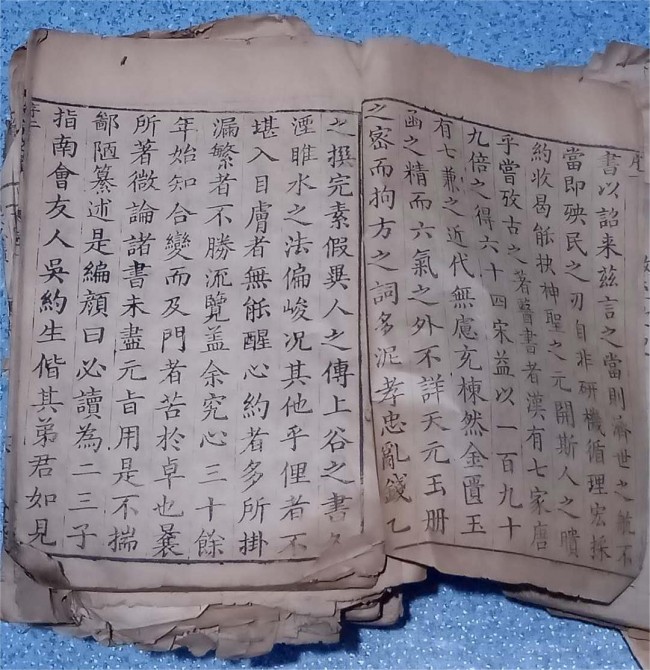 序一
書以詔来茲言之當則濟世之航不
當即殃民之刃自非研機循理宏採
約收曷能抉神聖之元開斯人之瞶
乎嘗攷古之著醫書者漢有七家唐
九倍之得六十四宋益以一百九十
有七兼之近代無慮充棟然金匱玉
函之精而六氣之外不詳天元玉册
之密而拘方之詞多泥孝忠亂錢乙
之撰完素假異人之傳上谷之書久
湮睢水之法偏峻况其他乎俚者不
堪入目膚者無能醒心約者多所掛
漏繁者不勝流覽盖余究心三十餘
年始知合變而及門者苦於卓也曩
所著微論諸書未盡元旨用是不揣
鄙陋纂述是編顏曰必讀為二三子
指南會友人吳約生偕其弟君如見